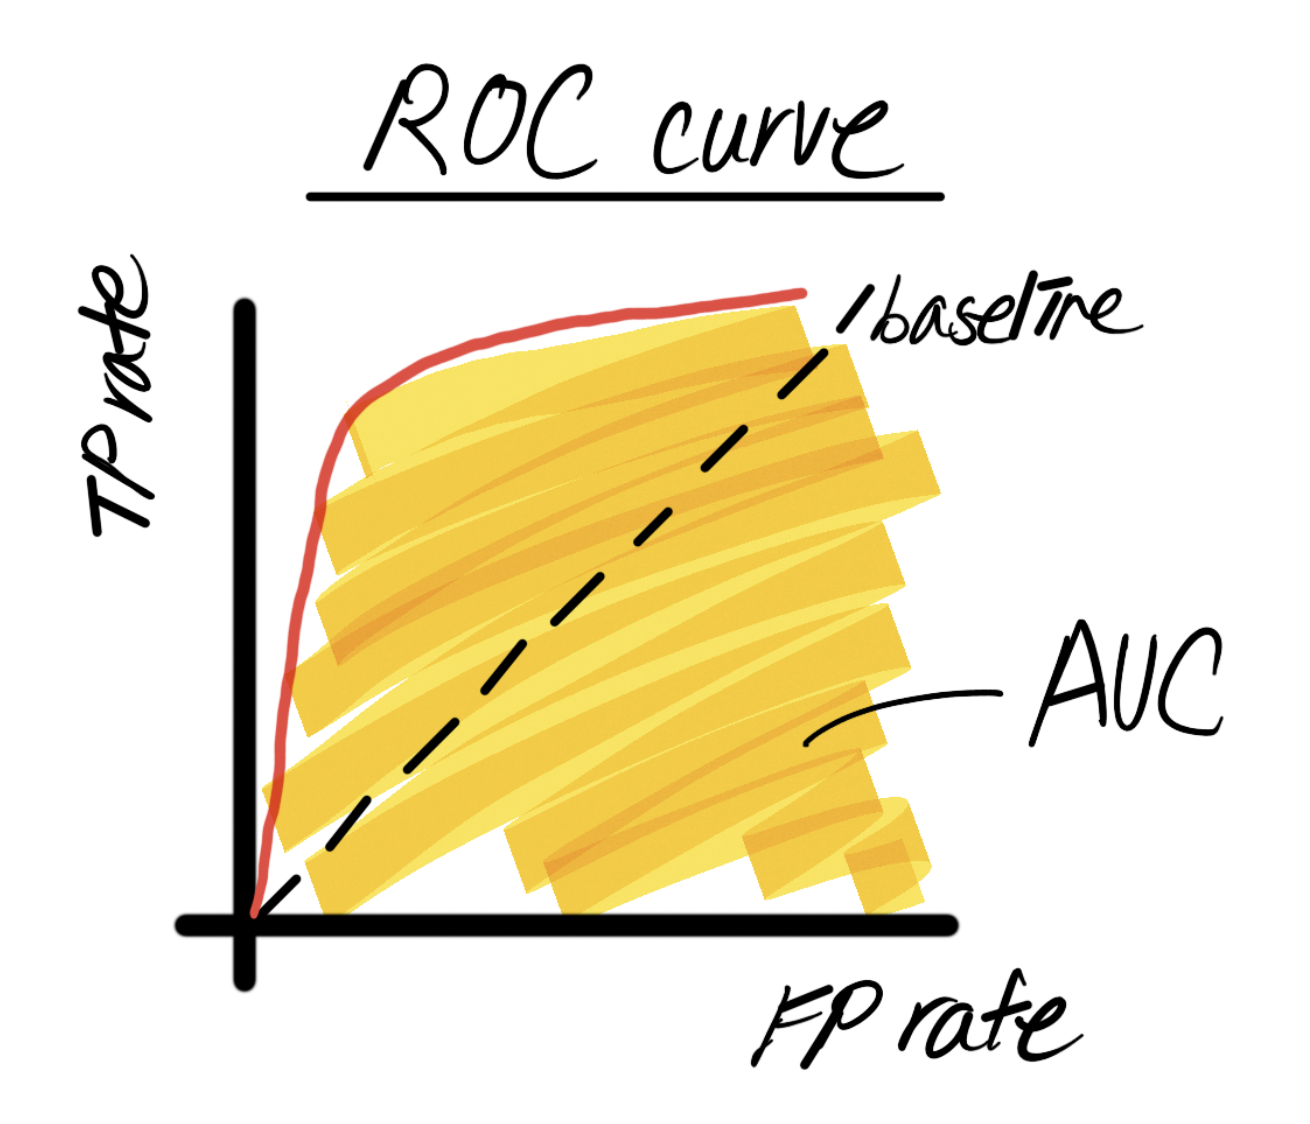 ROC curve
TP rate
baseline
AUC
FP rate